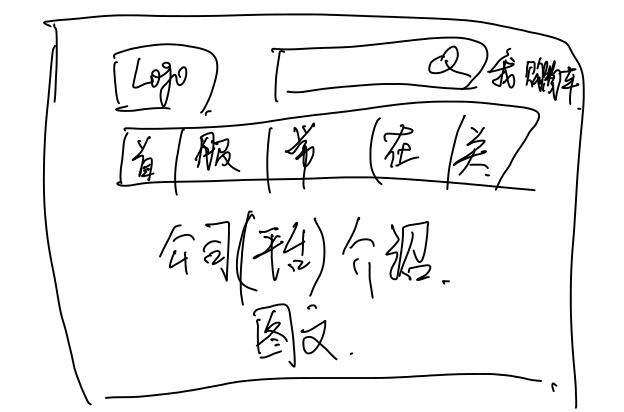 Logo 我 购物车
首 服 常 在 关
公司(平台)介绍.
图文.